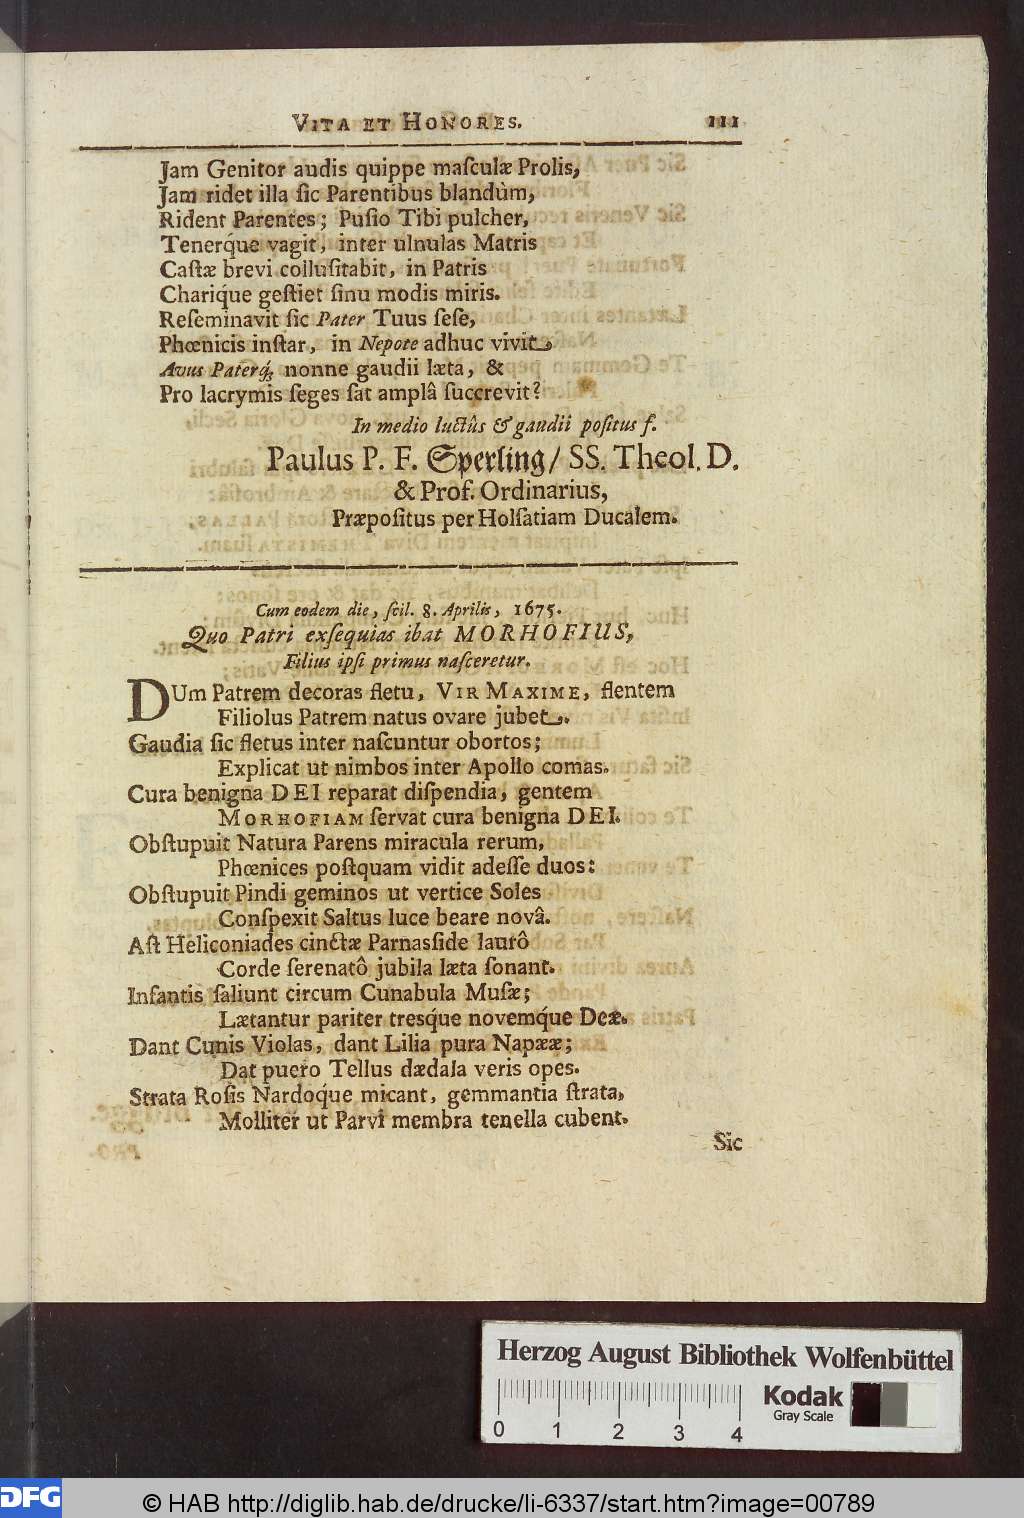 VITA ET HONORES. 111
Jam Genitor audis quippe maſculæ Prolis,
Jam ridet illa ſic Parentibus blandùm,
Rident Parentes; Puſio Tibi pulcher,
Tenerq́ue vagit, inter ulnulas Matris
Caſtæ brevi colluſitabit, in Patris
Chariq́ue geſtiet ſinu modis miris.
Reſeminavit ſic Pater Tuus ſeſe,
Phœnicis inſtar, in Nepote adhuc vivit.
Avus Paterq́; nonne gaudii læta, &
Pro lacrymis ſeges ſat amplâ ſuccrevit?
In medio luctûs & gaudii poſitus f.
Paulus P. F. Sperling / SS. Theol. D.
& Prof. Ordinarius,
Præpoſitus per Holſatiam Ducalem.
Cum eodem die, ſcil. 8. Aprilis, 1675.
Quo Patri exſequias ibat MORHOFIUS,
Filius ipſi primus naſceretur.
DUm Patrem decoras fletu, VIR MAXIME, flentem
Filiolus Patrem natus ovare jubet.
Gaudia ſic fletus inter naſcuntur obortos;
Explicat ut nimbos inter Apollo comas.
Cura benigna DEI reparat diſpendia, gentem
MORHOFIAM ſervat cura benigna DEI.
Obſtupuit Natura Parens miracula rerum,
Phœnices poſtquam vidit adeſſe duos:
Obſtupuit Pindi geminos ut vertice Soles
Conſpexit Saltus luce beare novâ.
Aſt Heliconiades cinctæ Parnasſide laurô
Corde ſerenatô jubila læta ſonant.
Infantis ſaliunt circum Cunabula Muſæ;
Lætantur pariter tresq́ue novemq́ue Deæ.
Dant Cunis Violas, dant Lilia pura Napææ;
Dat puero Tellus dædala veris opes.
Strata Roſis Nardoq́ue micant, gemmantia ſtrata,
Molliter ut Parvî membra tenella cubent.
Sic
Herzog August Bibliothek Wolfenbüttel
Kodak
Gray Scale
0 1 2 3 4
DFG
© HAB http://diglib.hab.de/drucke/li-6337/start.htm?image=00789